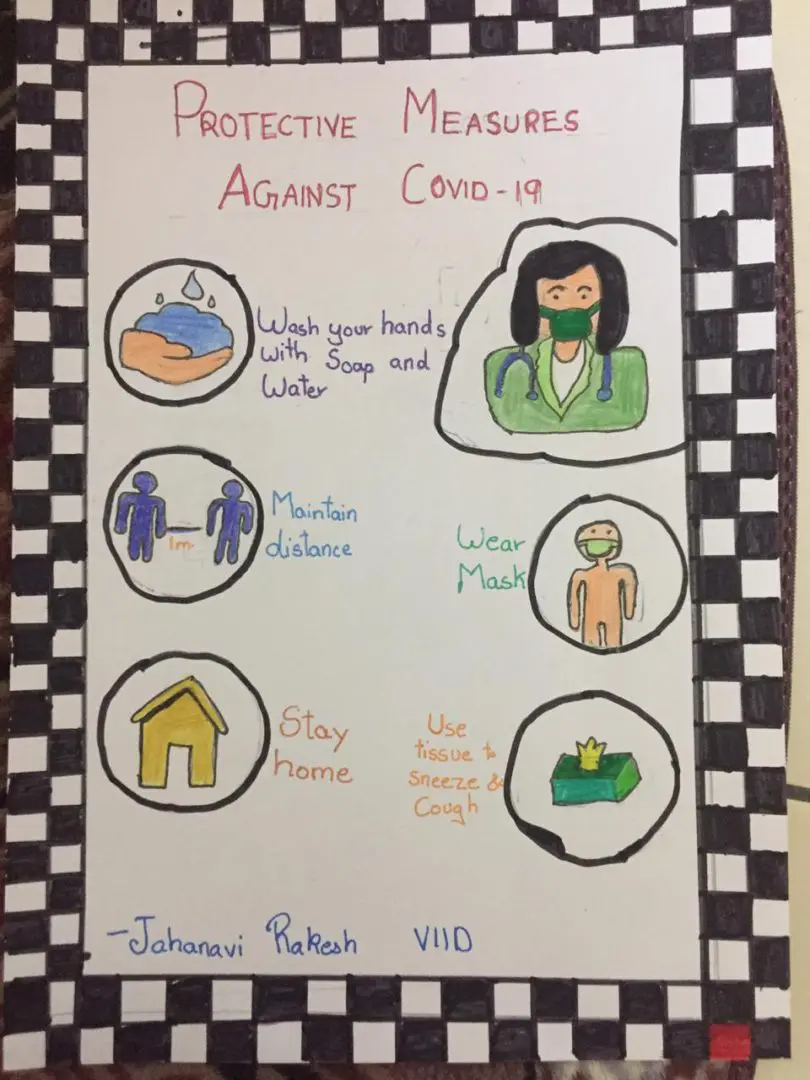 PROTECTIVE MEASURES
AGAINST COVID-19
Wash your hands
with Soap and
Water
1m
Maintain
distance
Wear
Mask
Stay
home
Use
tissue to
sneeze &
Cough
-Jahanavi Rakesh VIID